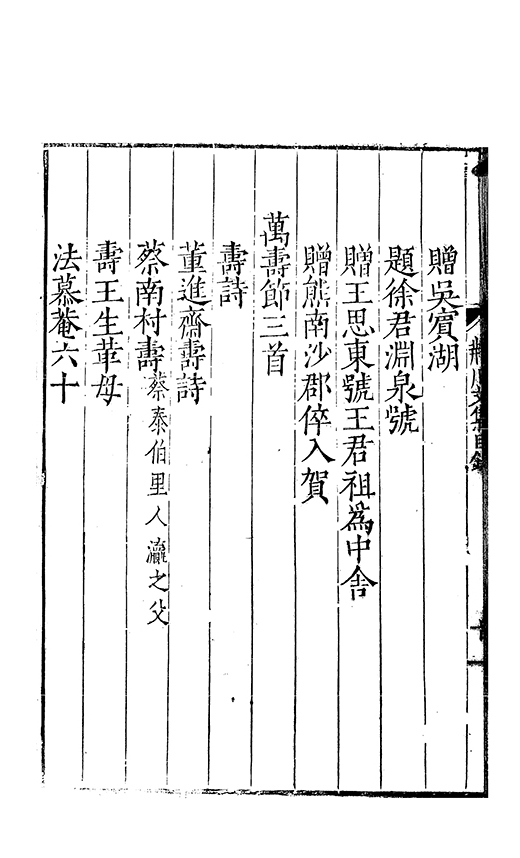 贈吳賓湖
題徐君淵泉號
贈王思東號王君祖爲中舍
贈熊南沙郡倅入賀
萬壽節三首
壽詩
董進齋壽詩
蔡南村壽蔡泰伯里人瀛之父
壽王生葦母
法慕菴六十